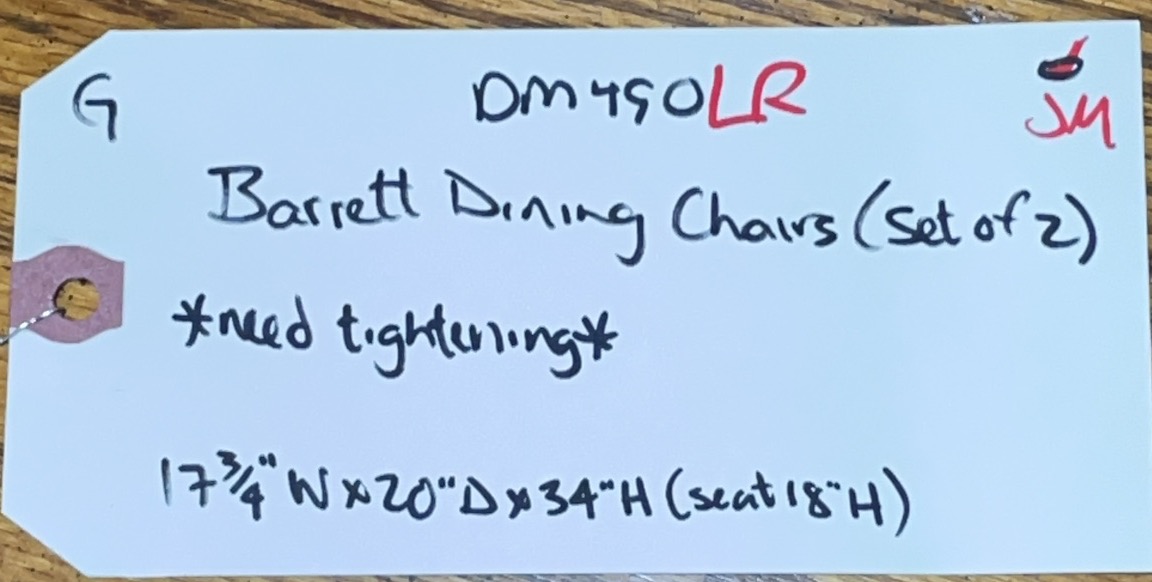 G DM490LR
JM
Barrett Dining Chairs (set of 2)
*need tightening*
17 3/4" W x 20" D x 34" H (seat 18" H)